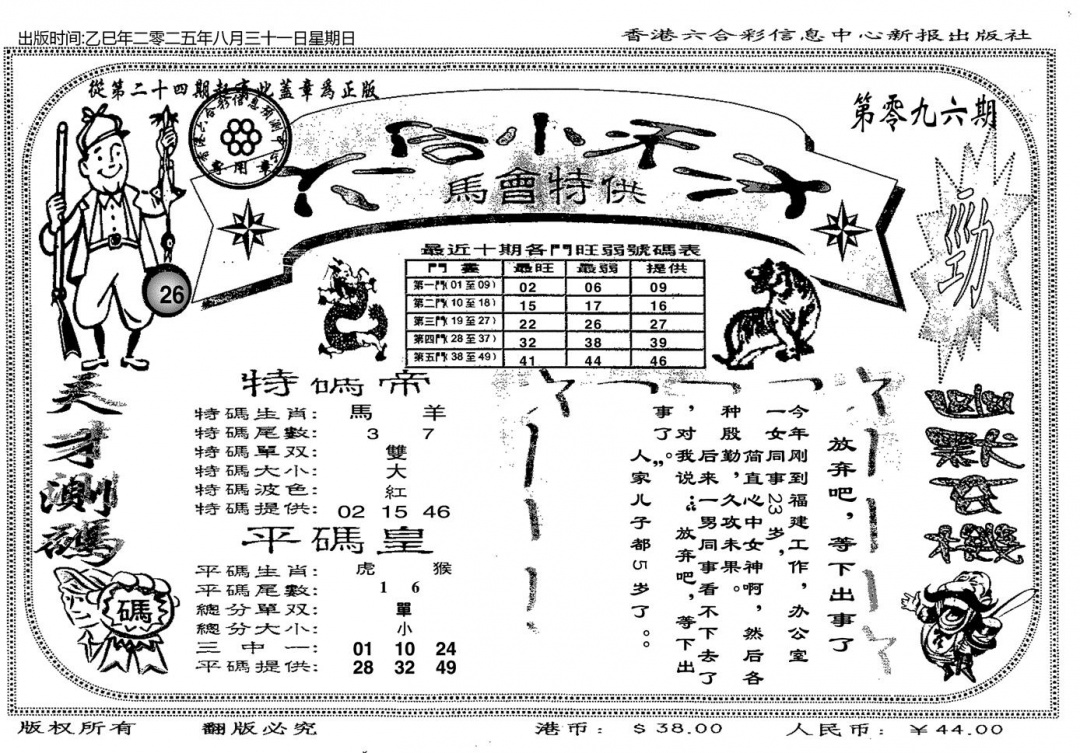 出版时间:乙巳年二零二五年八月三十一日星期日
香港六合彩信息中心新报出版社
從第二十四期起家此蓋章爲正版
第零九六期
專用章
六合小禾二才
馬會特供
勁
26
最近十期各門旺弱號碼表
門 最旺 最弱 提供
第一門(01至09) 02 06 09
第二門(10至18) 15 17 16
第三門(19至27) 22 26 27
第四門(28至37) 32 38 39
第五門(38至49) 41 44 46
天才測碼
特碼帝
特碼生肖: 馬 羊
特碼尾數: 3 7
特碼單双: 雙
特碼大小: 大
特碼波色: 紅
特碼提供: 02 15 46
平碼皇
平碼生肖: 虎 猴
平碼尾數: 1 6
總分單双: 單
總分大小: 小
三中一: 01 10 24
平碼提供: 28 32 49
碼
放弃吧，等下出事了
今年刚到福建工作，办公室
一女同事23岁，
简直心中女神啊，然后各
种殷勤，久攻未果。
后来一男同事看不下去了
，对我说：“放弃吧，等下出
事了”。
人家儿子都5岁了。。
幽默玄機
版权所有
翻版必究
港币: $38.00
人民币: ¥44.00